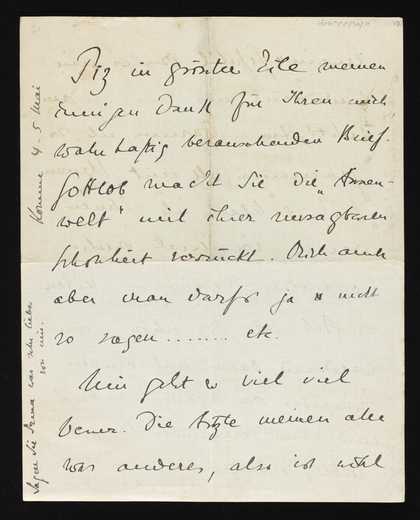 in grösster Eile meinen
innigen Dank für Ihren mich
wahrhaftig berauschenden Brief.
Gottlob macht Sie die „Aussen-
welt" mit ihrer unsagbaren
Schönheit verrückt. Mich auch
aber man darfs ja nicht
so sagen........ etc.
Mir geht es viel viel
besser. Die Ärzte meinen alle
was anderes, also ist wohl
Komme 4-5 Mai
Sagen Sie Irma was sehr liebes
von mir.